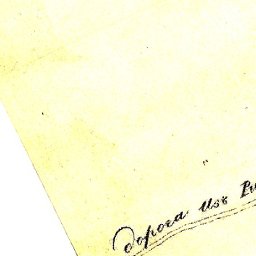 дорога изъ